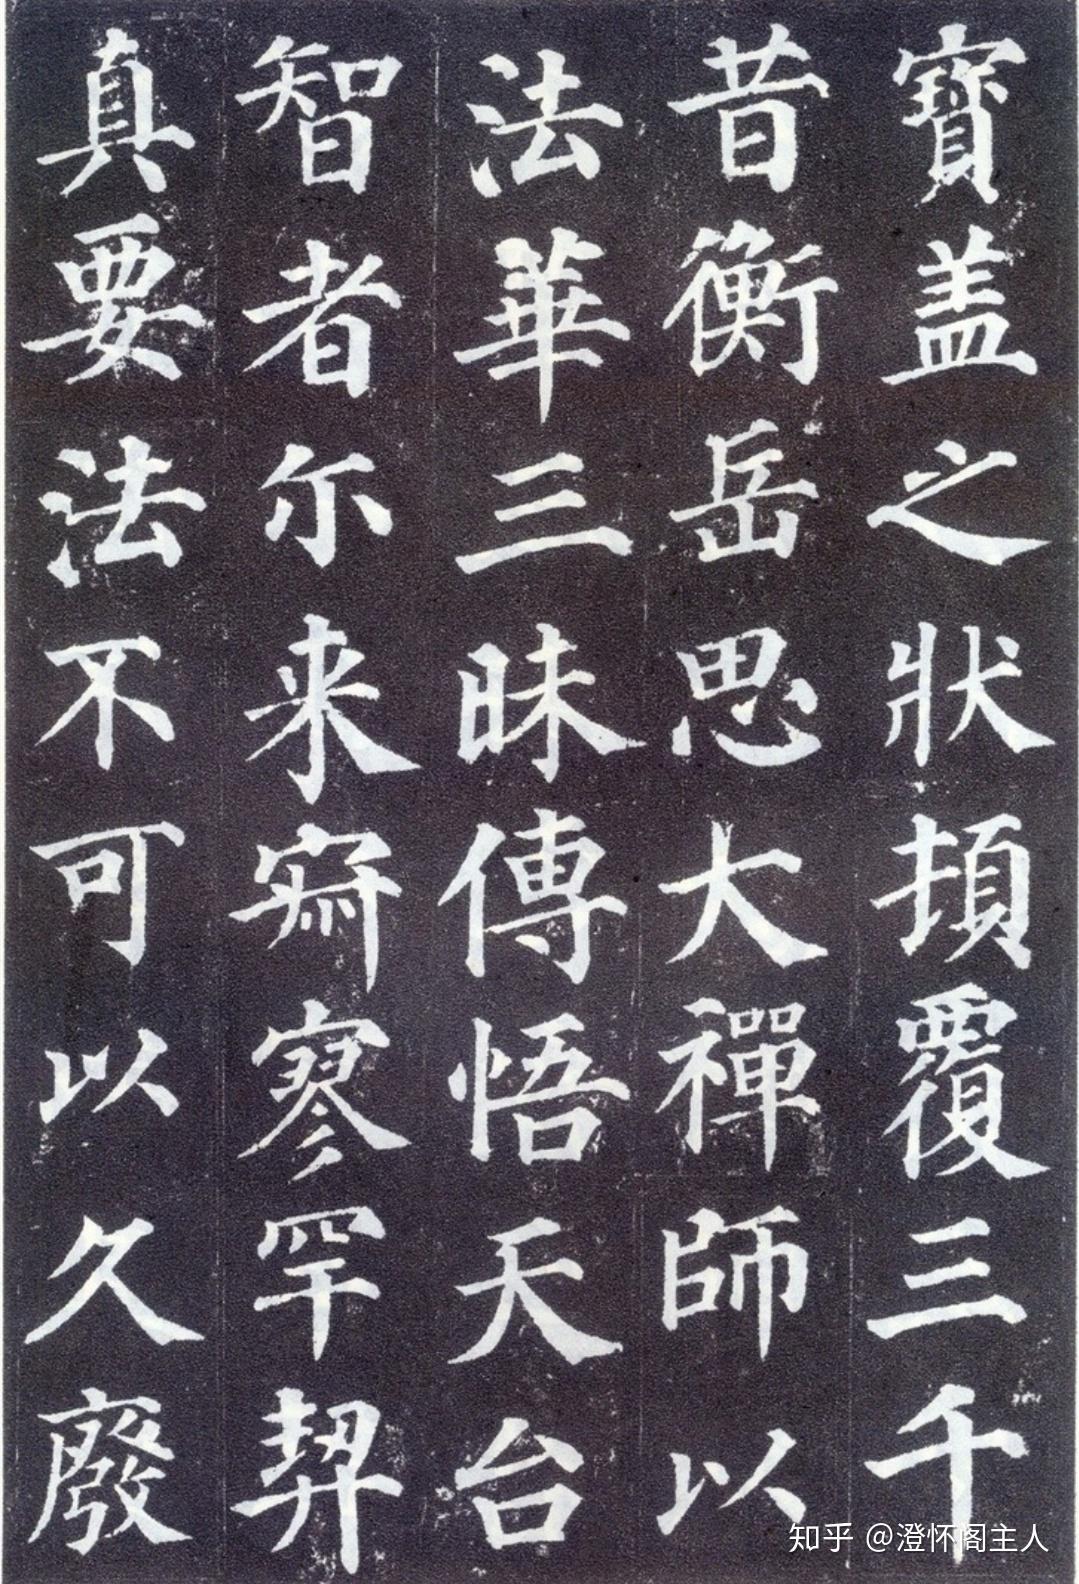 寶盖之狀頓覆三千
昔衡岳思大禪師以
法華三昧傳悟天台
智者尓来寂寥罕契
真要法不可以久廢
知乎 @澄怀阁主人